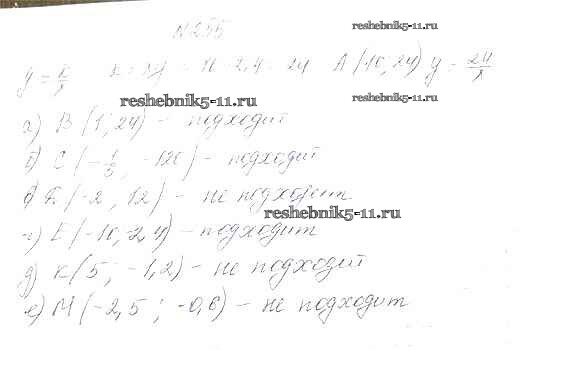 N255
reshebnik5-11.ru
y = k/x k = xy = 10 · 2,4 = 24 A (10; 2,4) y = 24/x
reshebnik5-11.ru
а) B (1; 24) - подходит
б) C (-1/5; -120) - подходит
в) (-2; 12) - не подходит
reshebnik5-11.ru
г) E (-10; -2,4) - подходит
д) K (5; -1,2) - не подходит
е) M (-2,5; -0,6) - не подходит